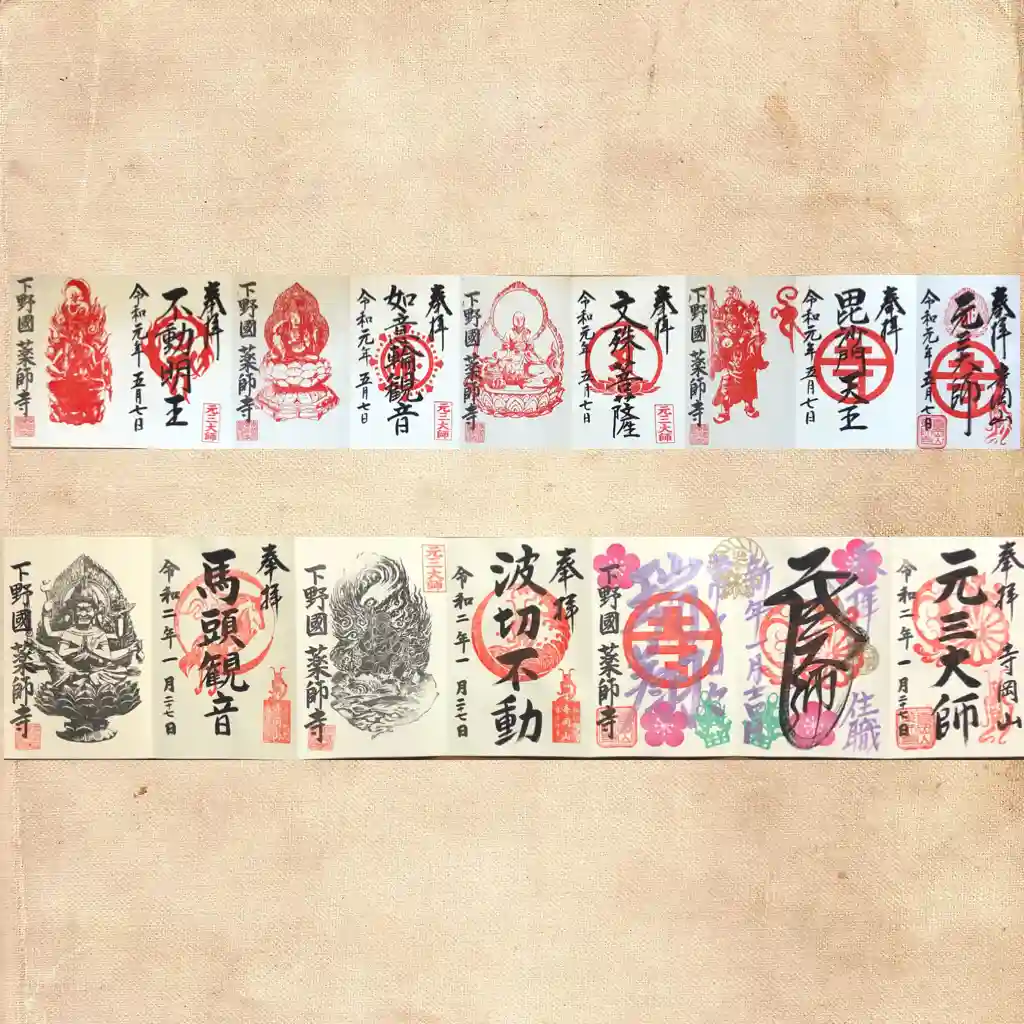 奉拝 寺岡山
元三大師
令和元年 五月七日
奉拝
毘沙門天王
令和元年 五月七日
下野國 薬師寺
奉拝
文殊菩薩
令和元年 五月七日
元三大師
下野國 薬師寺
奉拝
如意輪観音
令和元年 五月七日
元三大師
下野國 薬師寺
奉拝
不動明王
令和元年 五月七日
元三大師
下野國 薬師寺
奉拝 寺岡山
元三大師
令和二年一月二十七日
奉拝 住職
新年一月吉日
下野國 薬師寺
奉拝
波切不動
令和二年一月二十七日
寺岡山
元三大師
下野國 薬師寺
奉拝
馬頭観音
令和二年一月二十七日
下野國 薬師寺